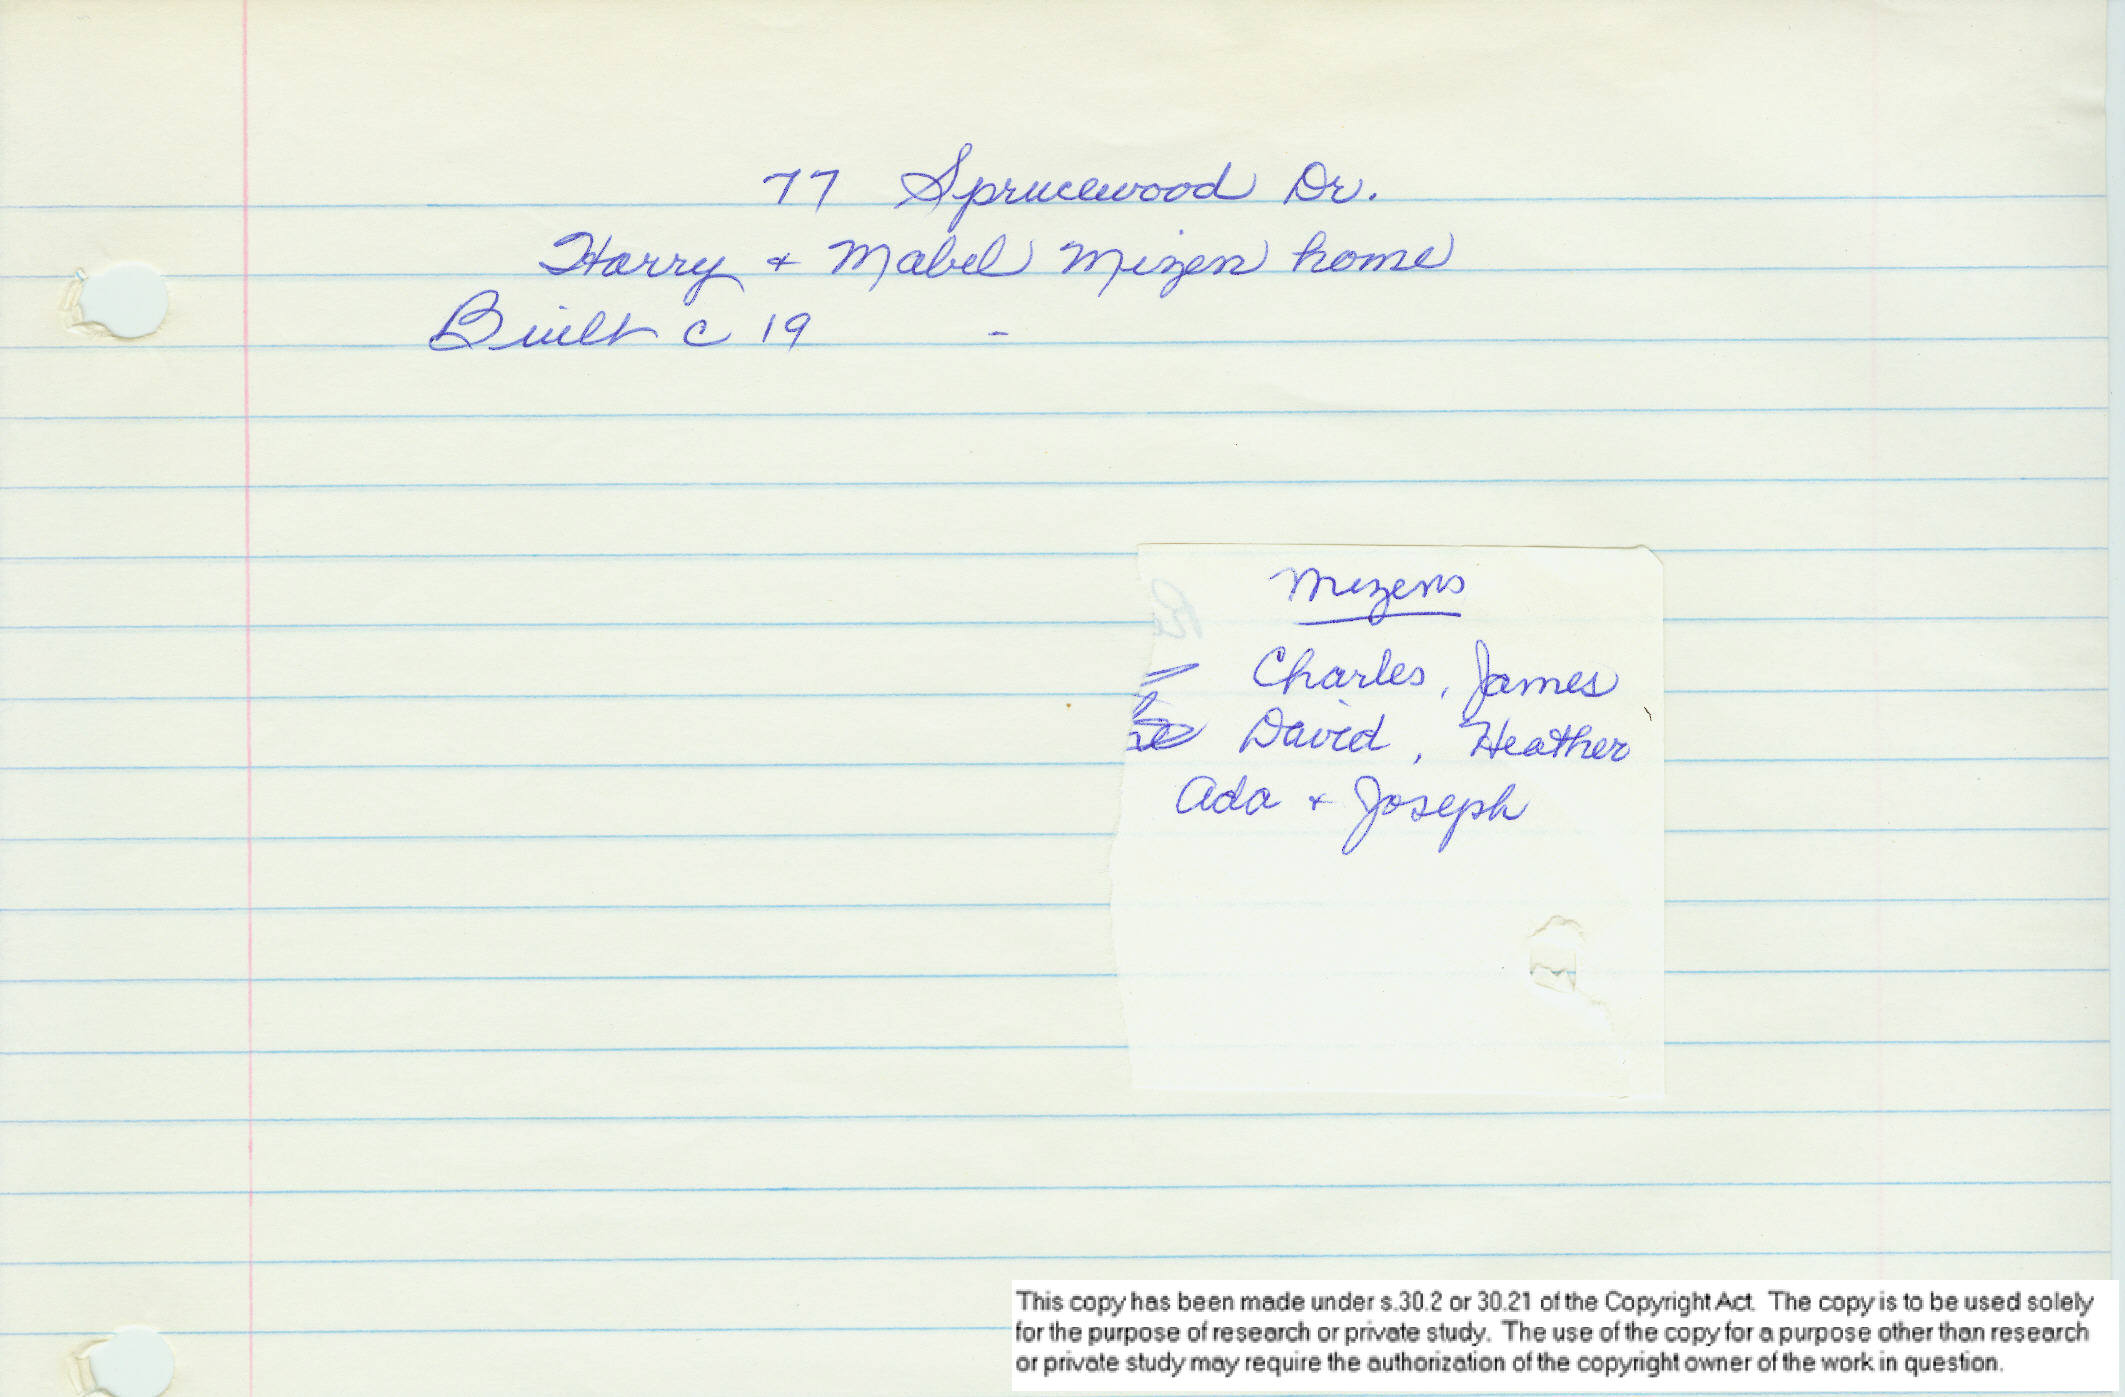 77 Sprucewood Dr.
Harry + Mabel Mizen home
Built c 19 -
Mizens
Charles, James
David, Heather
Ada + Joseph
This copy has been made under s.30.2 or 30.21 of the Copyright Act. The copy is to be used solely
for the purpose of research or private study. The use of the copy for a purpose other than research
or private study may require the authorization of the copyright owner of the work in question.